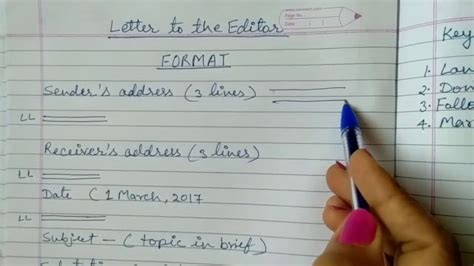 Letter to the Editor
Page No.
Date
FORMAT
Key
Sender's address (3 lines)
1. Lan
2. Don
LL
3. Follo
4. Mar
Receiver's address (3 lines)
LL
Date (1 March, 2017
LL
Subject - (topic in brief)